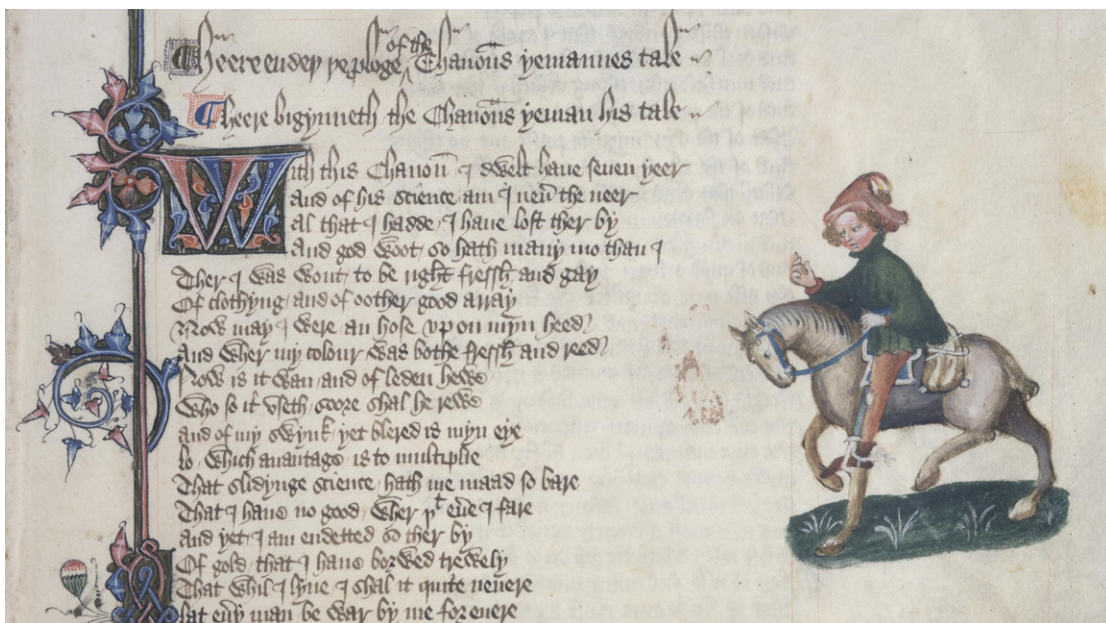 ¶ Heere endeþ þe prologe of the Chanoūs yemannes tale
¶ Heere bigynneth the Chanoūs yeman his tale
With this Chanoūn I dwelt haue seuen yeer
And of his science am I neuer the neer
Al that I hadde I haue lost ther by
And god woot so hath many mo than I
Ther I was wont to be right fressh and gay
Of clothyng and of oother good array
Now may I were an hose vp on myn heed
And wher my colour was bothe fressh and reed
Now is it wan and of leden hewe
Who so it vseth soore shal he rewe
And of my swynk yet blered is myn eye
lo which auantage is to multiplie
That slidynge science hath me maad so bare
That I haue no good wher þt euere I fare
And yet I am endetted so ther by
Of gold that I haue borwed trewely
That whil I lyue I shal it quite neuere
lat euery man be war by me for euere